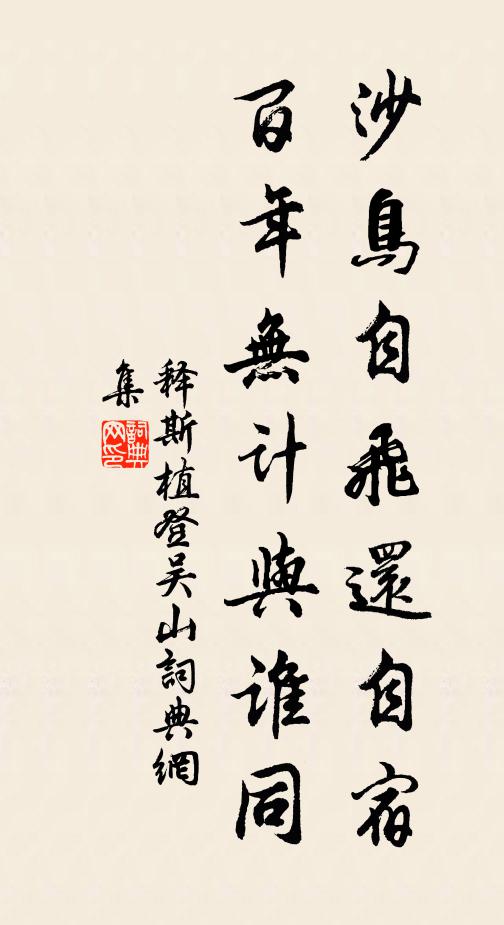 沙鳥自飛還自宿
百年無計與誰同
释斯植登吴山詞典網
集
詞典
网印